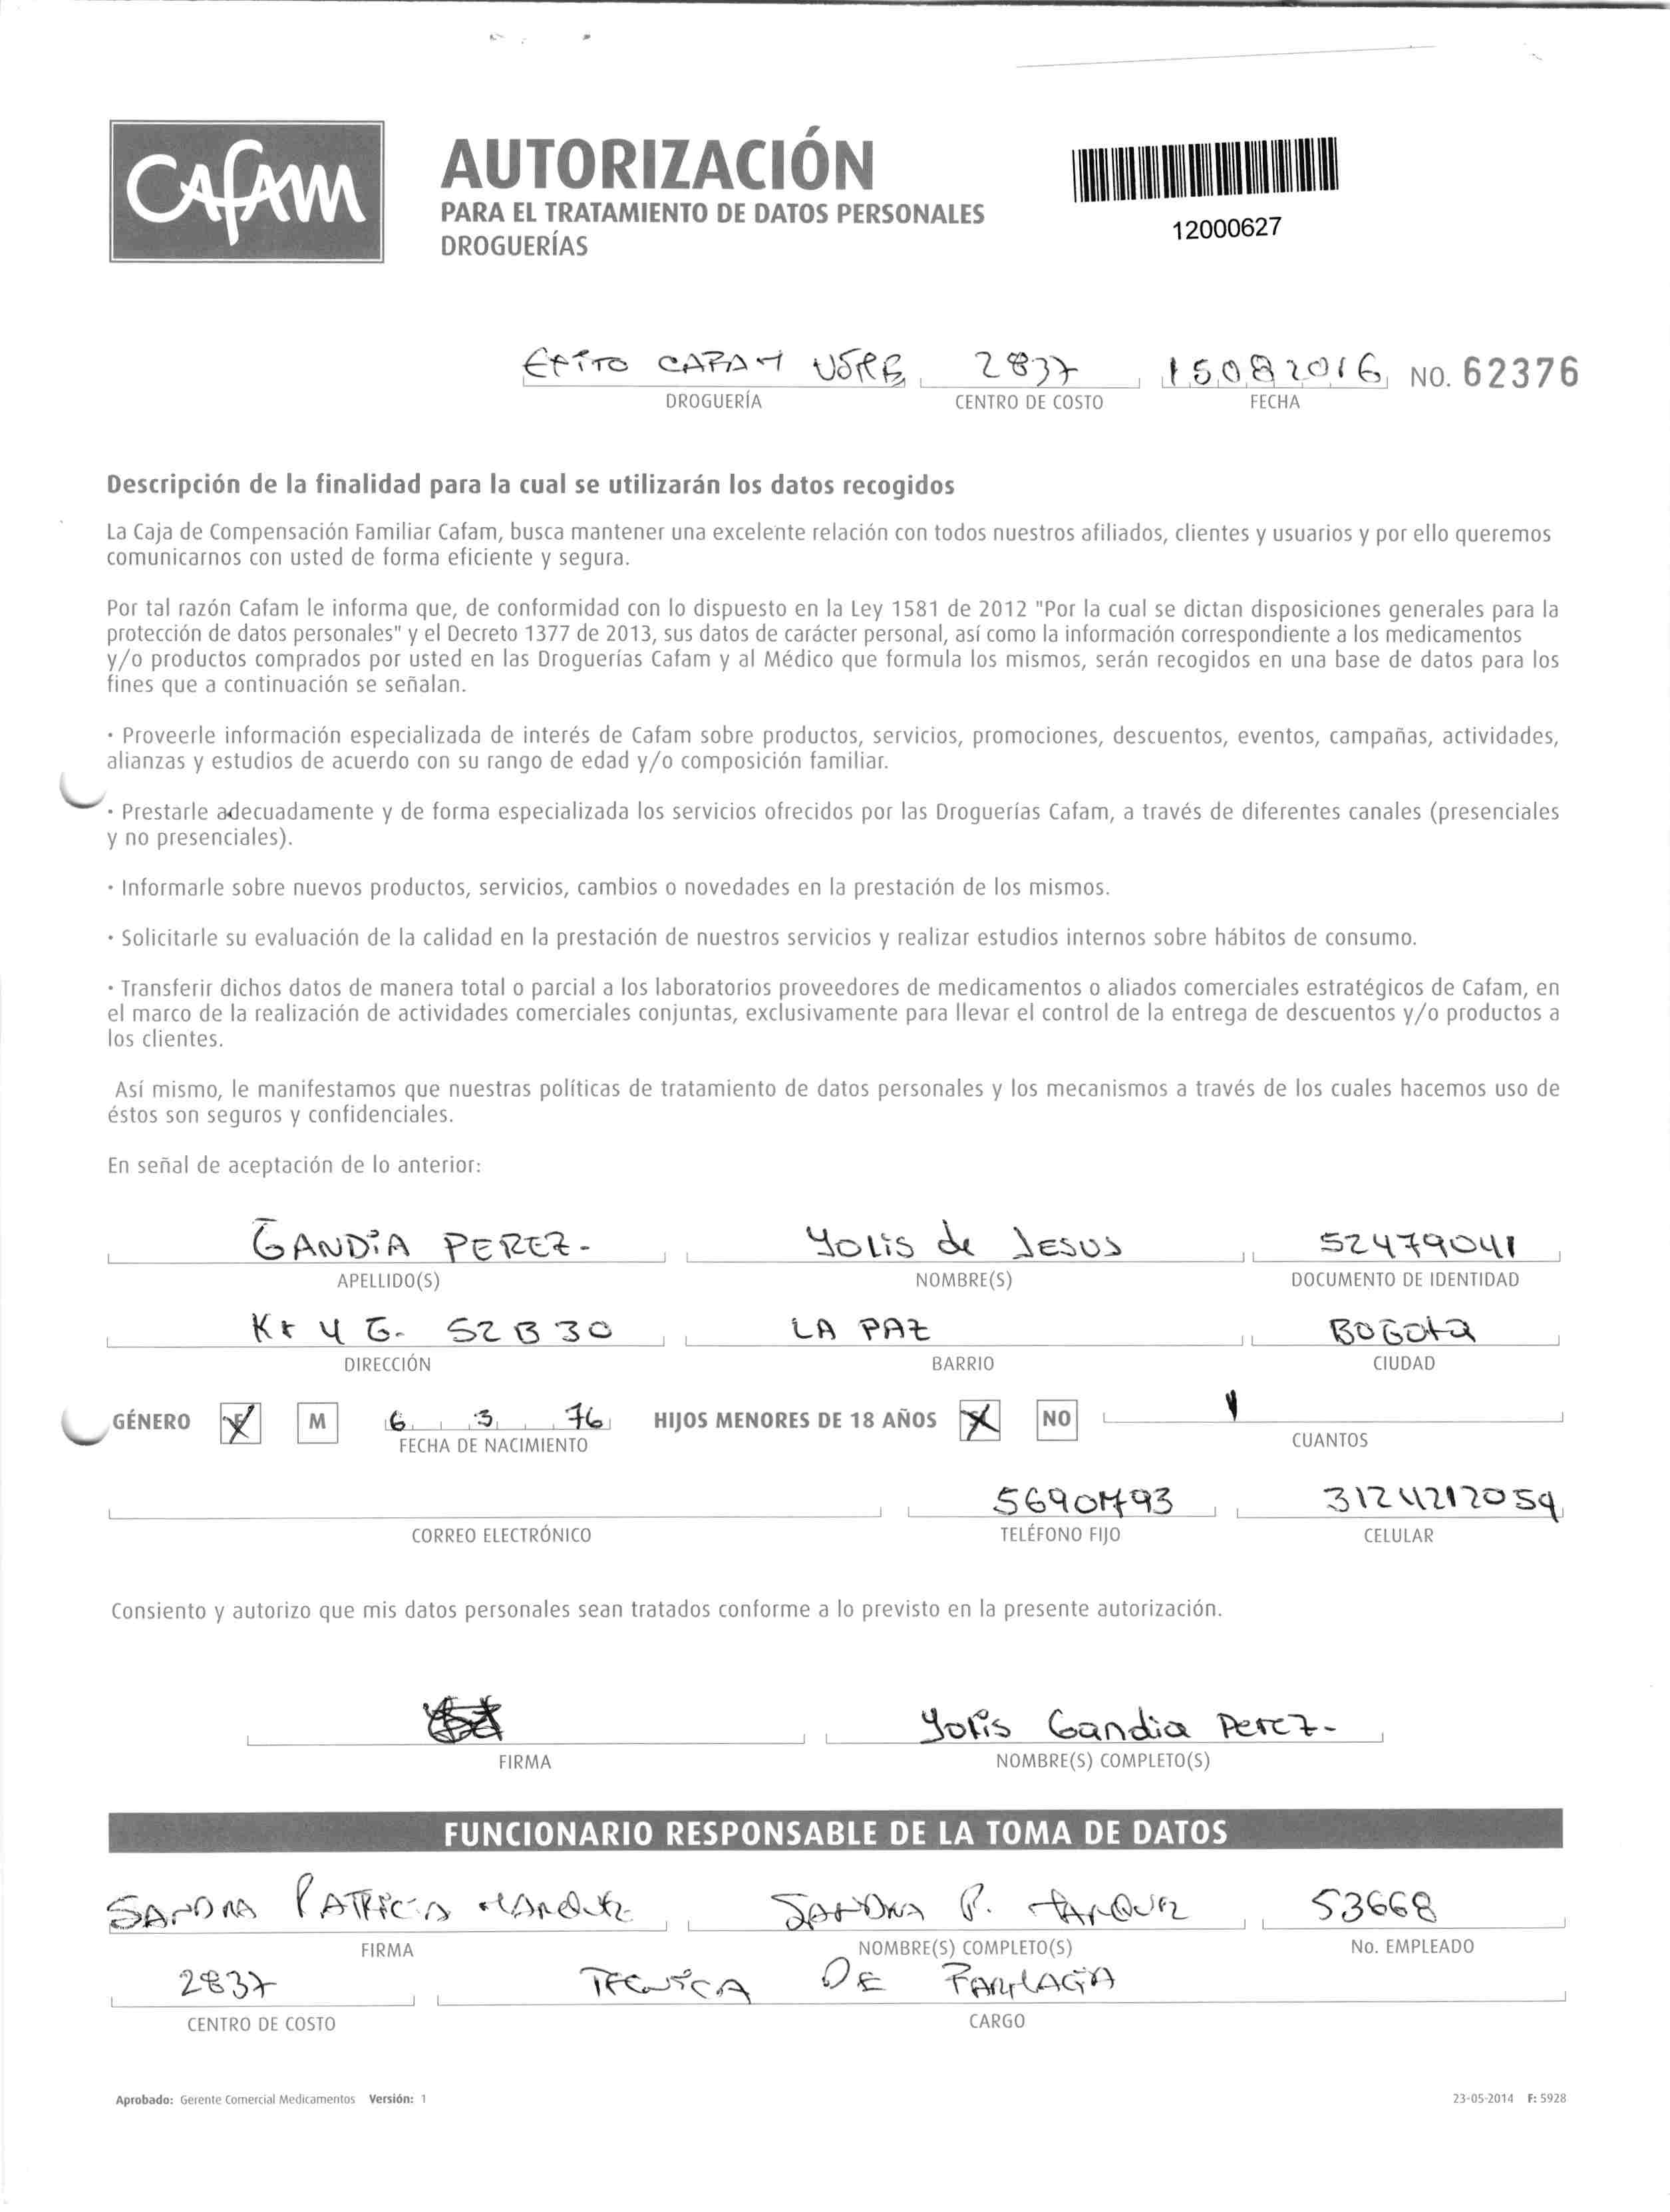 CAFAM
AUTORIZACIÓN
PARA EL TRATAMIENTO DE DATOS PERSONALES
DROGUERÍAS
12000627
CAFAM 2837 15082016 NO. 62376
DROGUERÍA CENTRO DE COSTO FECHA
Descripción de la finalidad para la cual se utilizarán los datos recogidos
La Caja de Compensación Familiar Cafam, busca mantener una excelente relación con todos nuestros afiliados, clientes y usuarios y por ello queremos
comunicarnos con usted de forma eficiente y segura.
Por tal razón Cafam le informa que, de conformidad con lo dispuesto en la Ley 1581 de 2012 "Por la cual se dictan disposiciones generales para la
protección de datos personales" y el Decreto 1377 de 2013, sus datos de carácter personal, así como la información correspondiente a los medicamentos
y/o productos comprados por usted en las Droguerías Cafam y al Médico que formula los mismos, serán recogidos en una base de datos para los
fines que a continuación se señalan.
· Proveerle información especializada de interés de Cafam sobre productos, servicios, promociones, descuentos, eventos, campañas, actividades,
alianzas y estudios de acuerdo con su rango de edad y/o composición familiar.
· Prestarle adecuadamente y de forma especializada los servicios ofrecidos por las Droguerías Cafam, a través de diferentes canales (presenciales
y no presenciales).
· Informarle sobre nuevos productos, servicios, cambios o novedades en la prestación de los mismos.
· Solicitarle su evaluación de la calidad en la prestación de nuestros servicios y realizar estudios internos sobre hábitos de consumo.
· Transferir dichos datos de manera total o parcial a los laboratorios proveedores de medicamentos o aliados comerciales estratégicos de Cafam, en
el marco de la realización de actividades comerciales conjuntas, exclusivamente para llevar el control de la entrega de descuentos y/o productos a
los clientes.
Así mismo, le manifestamos que nuestras políticas de tratamiento de datos personales y los mecanismos a través de los cuales hacemos uso de
éstos son seguros y confidenciales.
En señal de aceptación de lo anterior:
GANDIA PEREZ- Yolis de JESUS 52479041
APELLIDO(S) NOMBRE(S) DOCUMENTO DE IDENTIDAD
Kr 4 G. 52 B 30 LA PAZ BOGOta
DIRECCIÓN BARRIO CIUDAD
GÉNERO M 6 3 76 HIJOS MENORES DE 18 AÑOS NO 1
FECHA DE NACIMIENTO CUANTOS
3124212059
CORREO ELECTRÓNICO TELÉFONO FIJO CELULAR
Consiento y autorizo que mis datos personales sean tratados conforme a lo previsto en la presente autorización.
Yolis Gandia Perez-
FIRMA NOMBRE(S) COMPLETO(S)
FUNCIONARIO RESPONSABLE DE LA TOMA DE DATOS
SANDRA PATRICIA SANDRA P. 53668
FIRMA NOMBRE(S) COMPLETO(S) No. EMPLEADO
2837 TECNICA DE FARMACIA
CENTRO DE COSTO CARGO
Aprobado: Gerente Comercial Medicamentos Versión: 1 23-05-2014 F: 5928